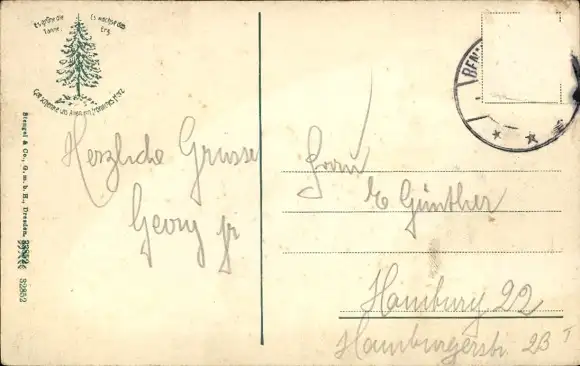 Es grüne die Tanne,
Es wachse das Erz
Gott schenke uns Allen ein fröhliches Herz
Stengel & Co., G. m. b. H., Dresden. 32852
Herzliche Grüsse
Georg jr
BEN
Frau
E Günther
Hamburg 22
Hamburgerstr. 23 I